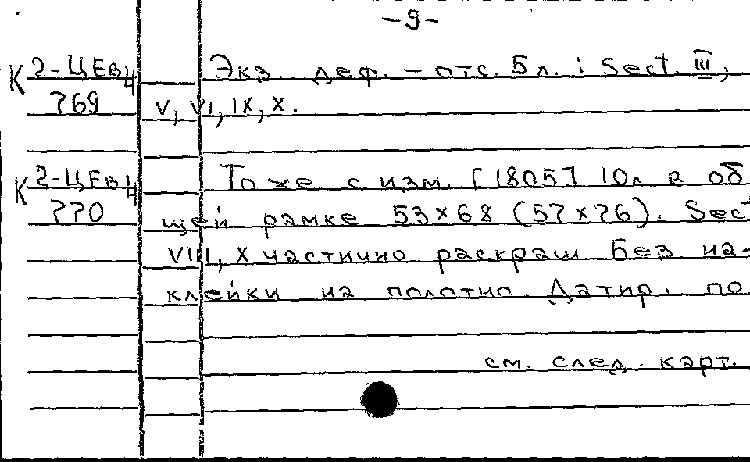 -9-
К 2-ЦЕв/4 Экз. деф. - отс. 5 л. : Sect. III,
769 V, VI, IX, X.
К 2-ЦЕв/4 То же с изм. [1805] 10 л в об
770 щей рамке 53×68 (57×76). Sect
VIII, X частично раскраш Без на-
клейки на полотно. Датир. по
см. след. карт.